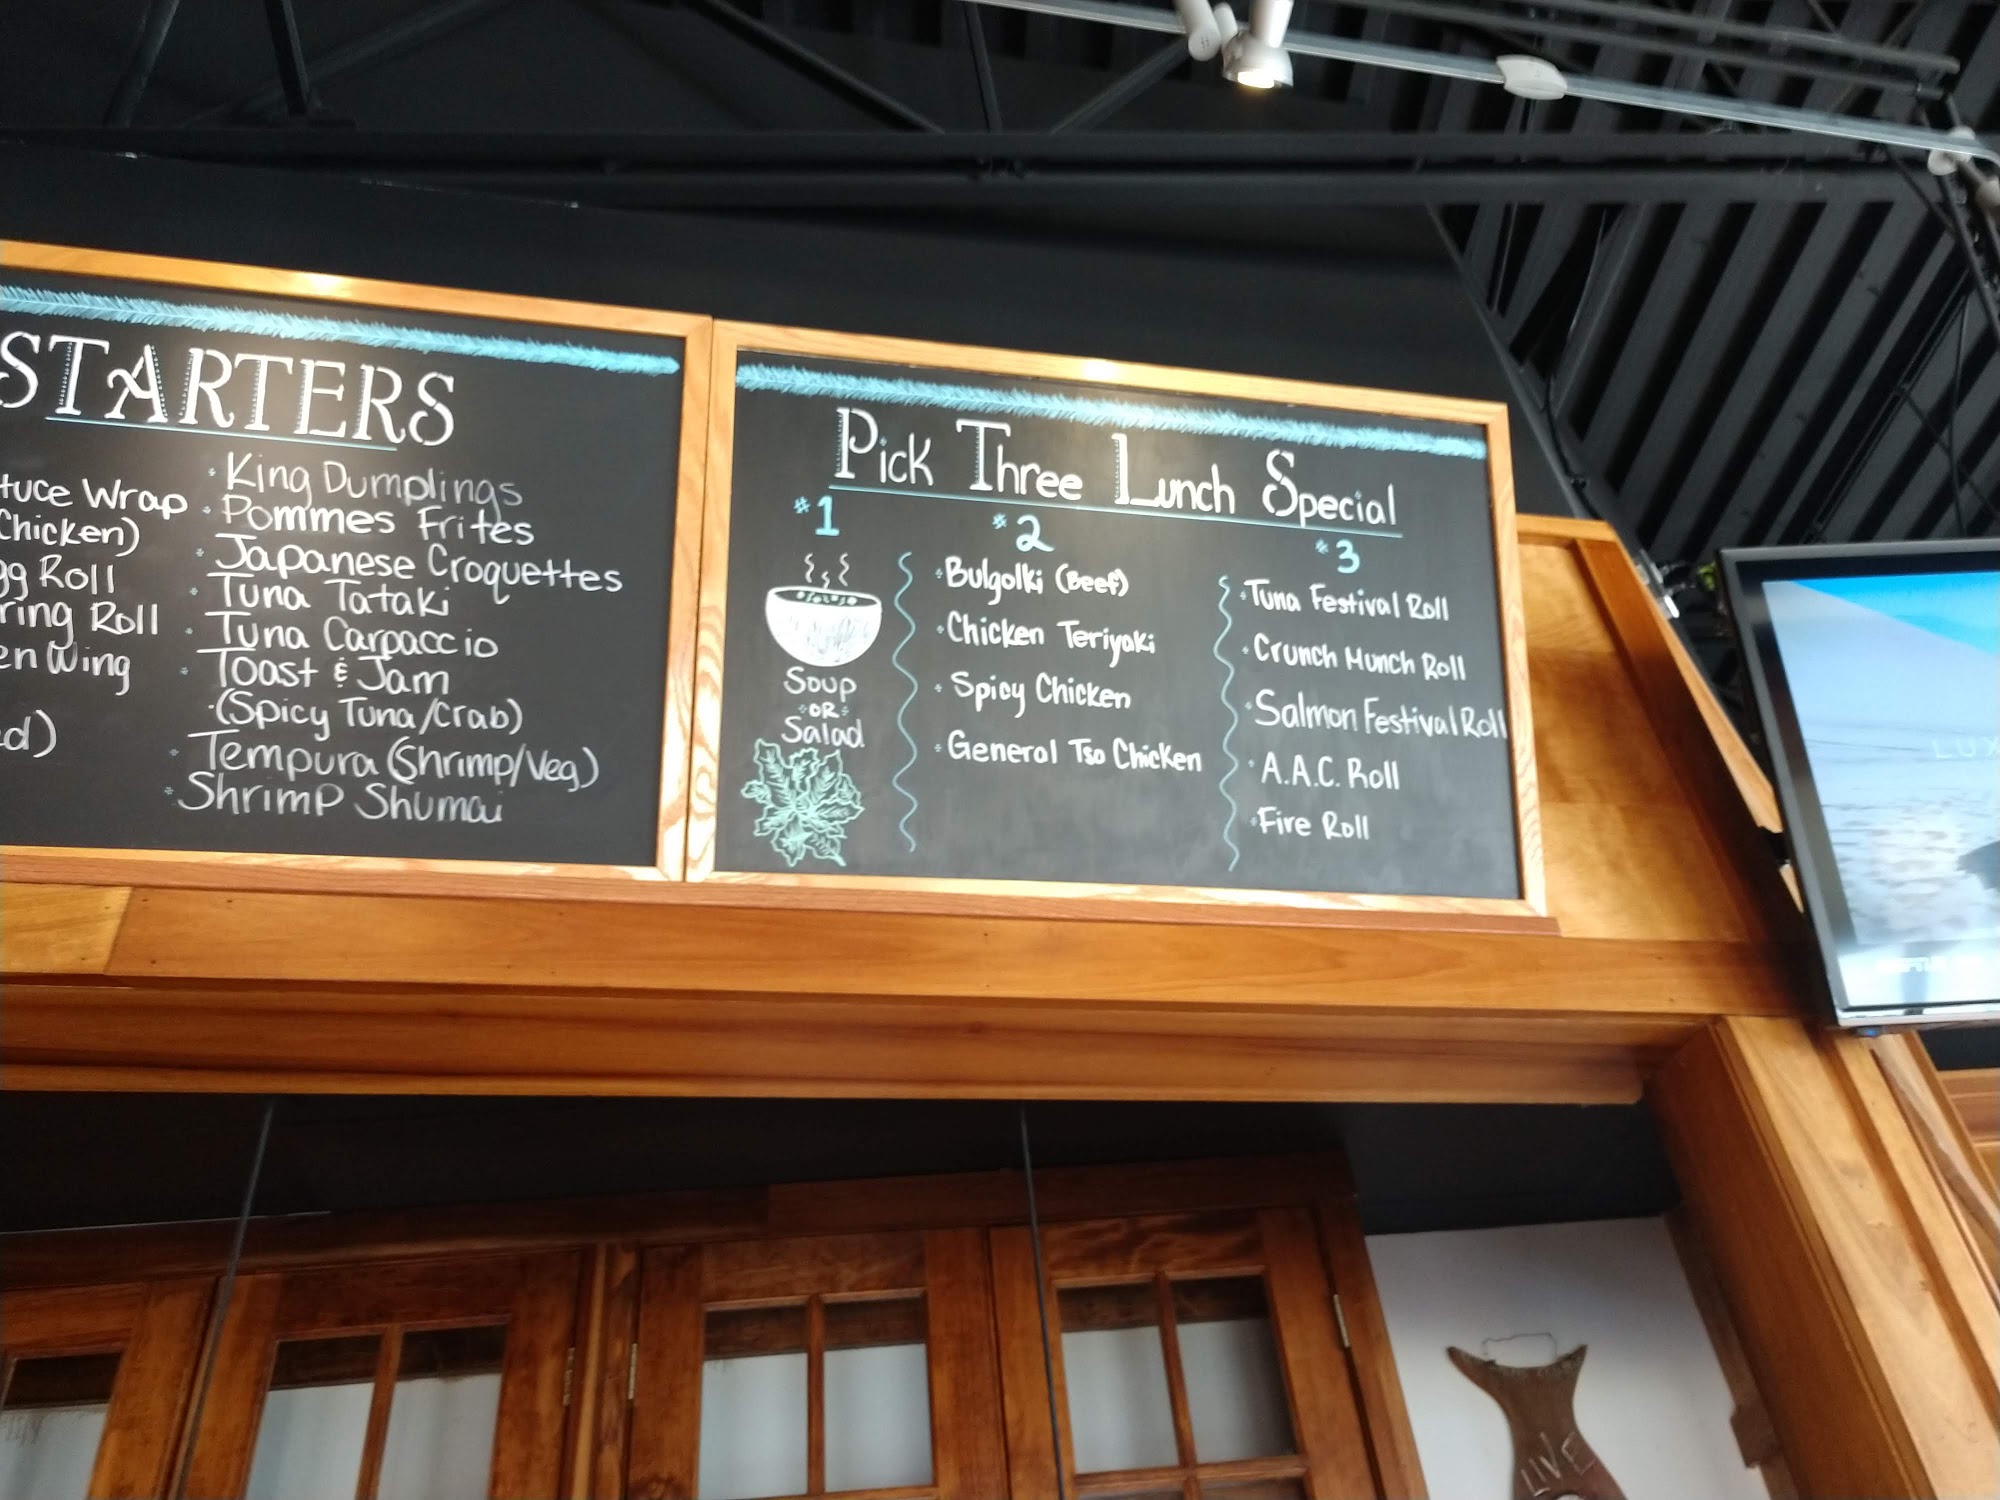 STARTERS
Wrap
Chicken)
Roll
Roll
Wing
· King Dumplings
· Pommes Frites
· Japanese Croquettes
· Tuna Tataki
· Tuna Carpaccio
· Toast & Jam
·(Spicy Tuna/Crab)
· Tempura (Shrimp/Veg)
· Shrimp Shumai
Pick Three Lunch Special
#1
Soup
·OR·
Salad
#2
· Bulgolki (Beef)
· Chicken Teriyaki
· Spicy Chicken
· General Tso Chicken
#3
· Tuna Festival Roll
· Crunch Munch Roll
· Salmon Festival Roll
· A.A.C. Roll
· Fire Roll
LIVE